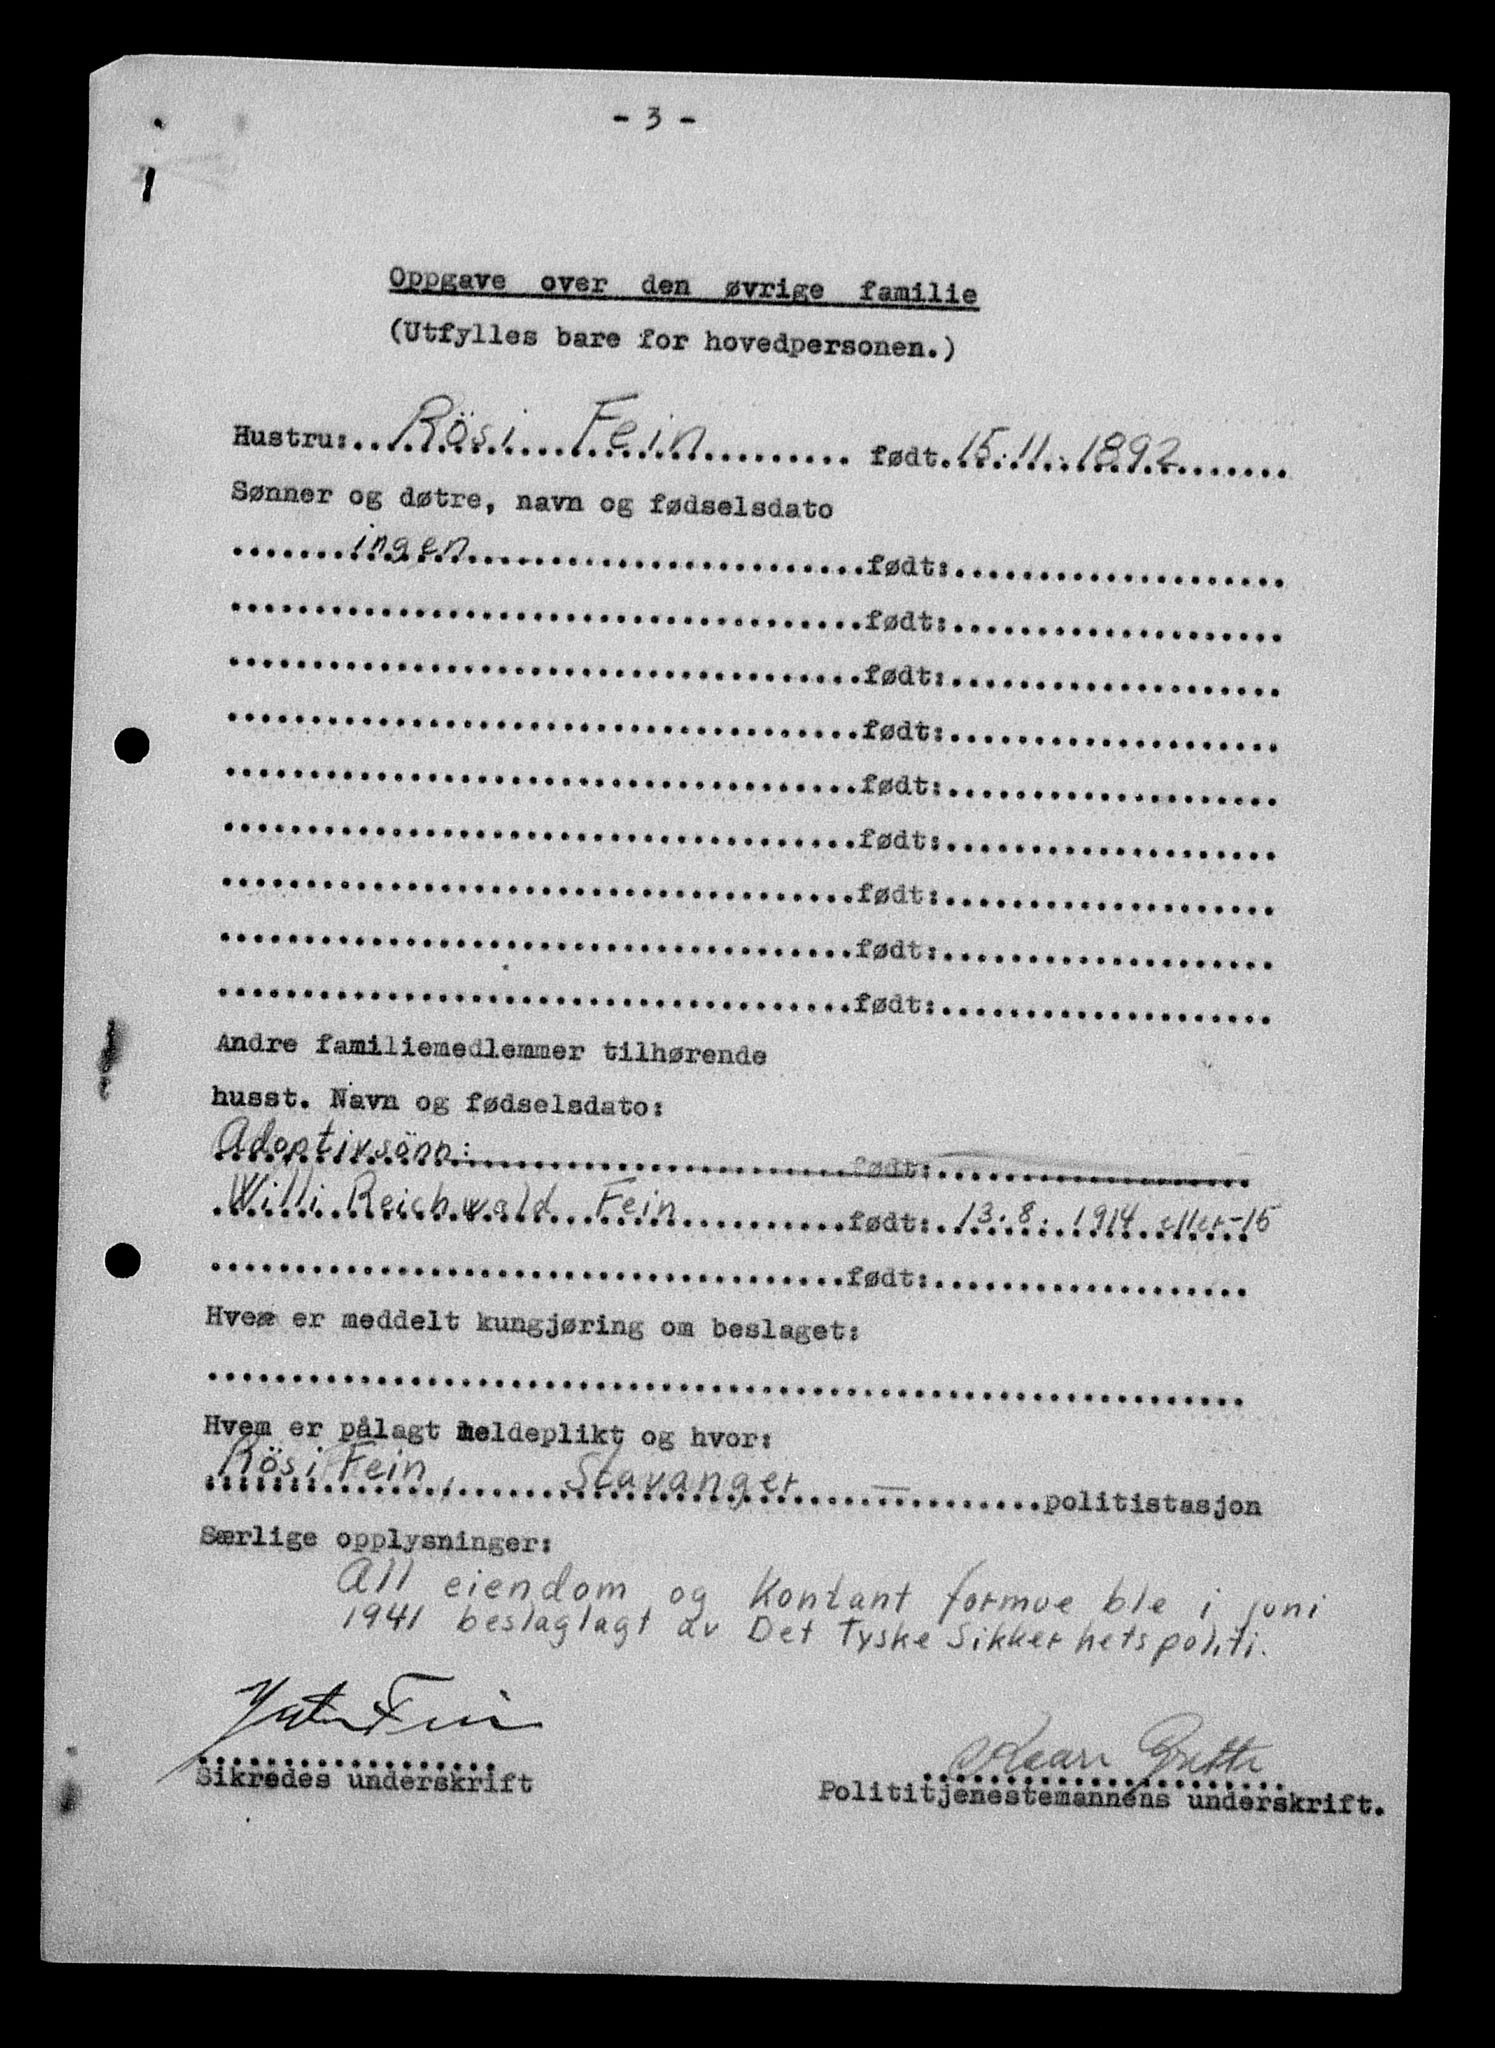 - 3 -
Oppgave over den øvrige familie
(Utfylles bare for hovedpersonen.)
Hustru: Rösi Fein født 15.11.1892
Sønner og døtre, navn og fødselsdato
ingen født:
født:
født:
født:
født:
født:
født:
født:
født:
Andre familiemedlemmer tilhørende
husst. Navn og fødselsdato:
Adoptivsönn: født:
Willi Reichwald Fein født: 13.8.1914 eller-15
født:
Hvem er meddelt kungjøring om beslaget:
Hvem er pålagt meldeplikt og hvor:
Rösi Fein, Stavanger — politistasjon
Særlige opplysninger:
All eiendom og Kontant formue ble i juni
1941 beslaglagt av Det Tyske Sikkerhetspoliti.
Fein
Sikredes underskrift
Polititjenestemannens underskrift.